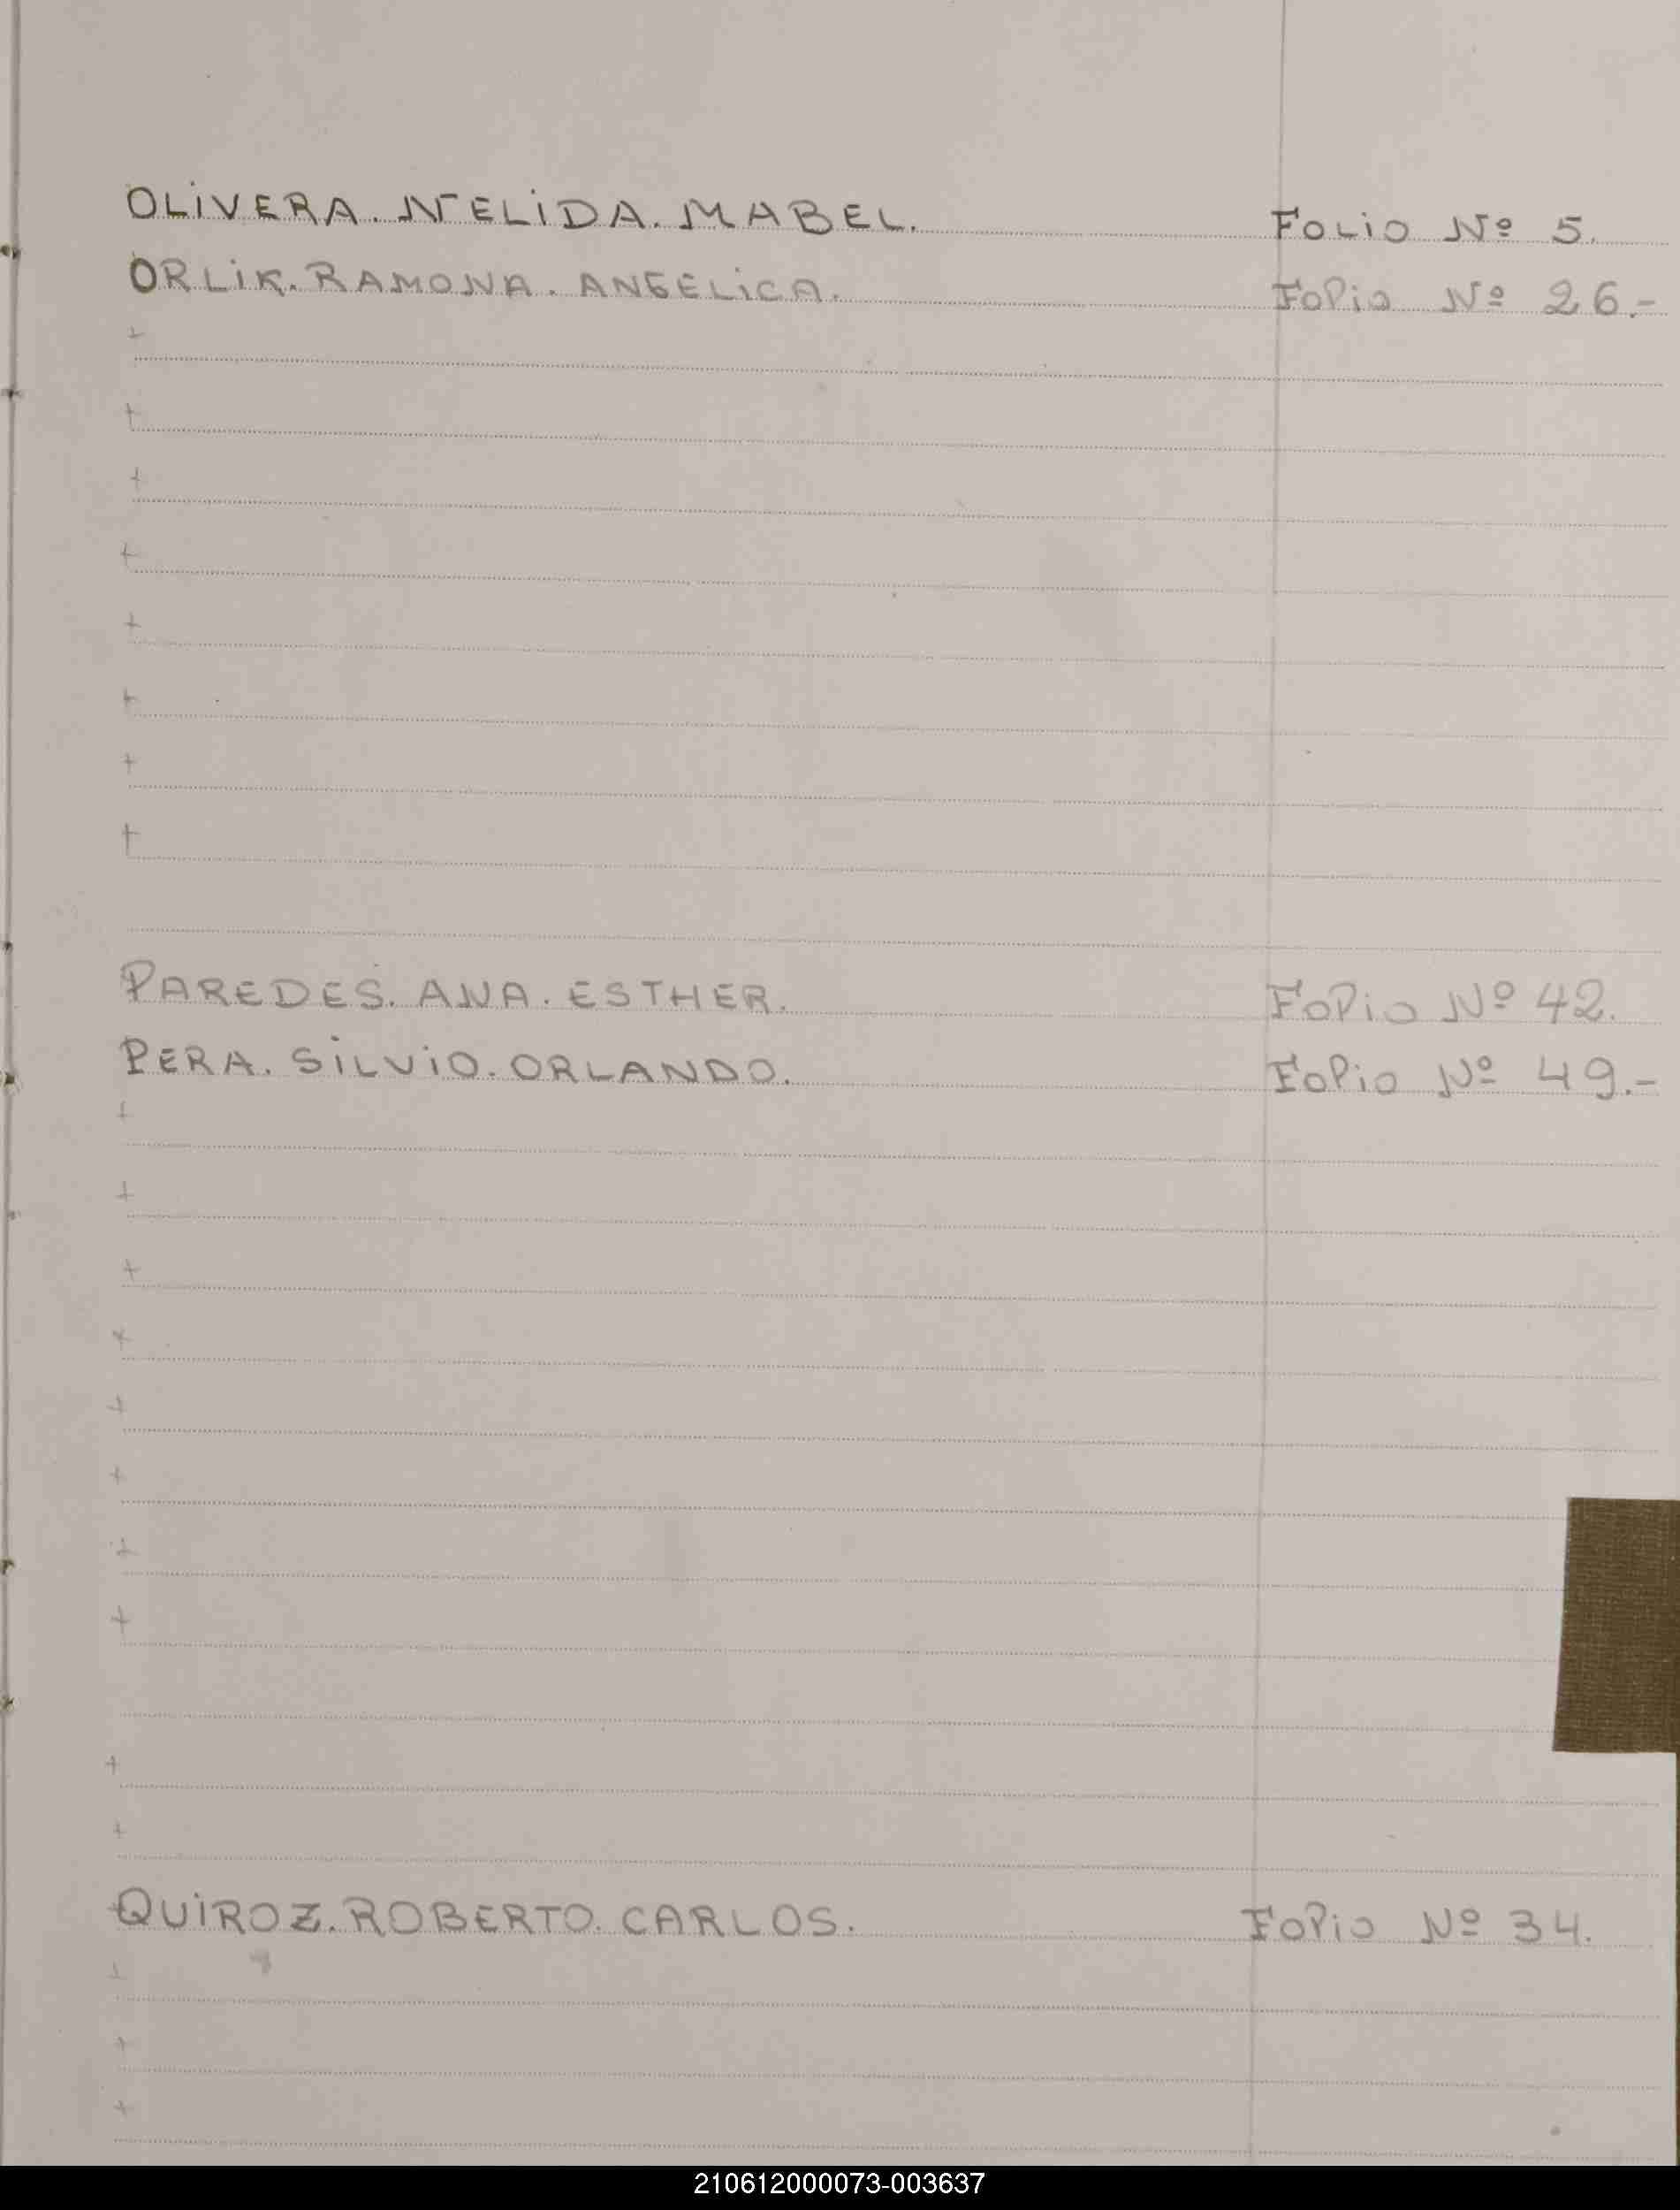 OLIVERA. NELIDA. MABEL. FOLIO Nº 5.
ORLIK. RAMONA. ANGELICA. Folio Nº 26.-
PAREDES. ANA. ESTHER. Folio Nº 42.
PERA. SILVIO. ORLANDO. Folio Nº 49.-
QUIROZ. ROBERTO. CARLOS. Folio Nº 34.
210612000073-003637